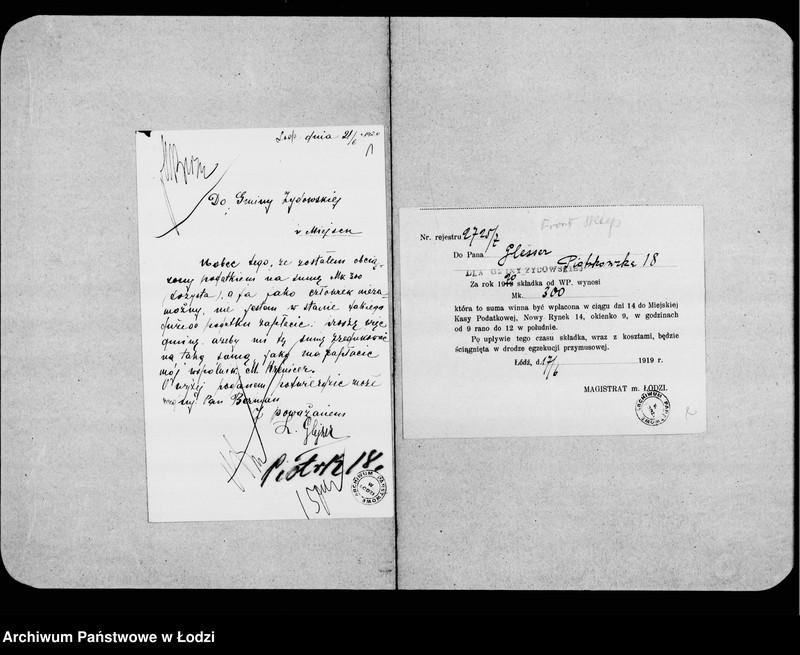 Łódź dnia 21/6 1920
Do Gminy Żydowskiej
w Miejscu
Wobec tego, że zostałem obcią-
żony podatkiem na sumę Mk 300
a ja jako człowiek nieza-
możny, nie jestem w stanie takiego
dużego podatku zapłacić. proszę więc
gminy ażeby mi tę sumę zredukować
na taką samą, jaką ma zapłacić
mój wspólnik M.
O wyżej podanem potwierdzić może
Pan Berman
Z poważaniem
Ł. Glejser
Piotrk 18.
ARCHIWUM PAŃSTWOWE
W
ŁODZI
Nr. rejestru 2725/z
Do Pana Glesser
Piotrkowska 18
DLA GMINY ŻYDOWSKIEJ
Za rok 1920 składka od WP. wynosi
Mk. 300
która to suma winna być wpłacona w ciągu dni 14 do Miejskiej
Kasy Podatkowej, Nowy Rynek 14, okienko 9, w godzinach
od 9 rano do 12 w południe.
Po upływie tego czasu składka, wraz z kosztami, będzie
ściągnięta w drodze egzekucji przymusowej.
Łódź, d. 17/6 1919 r.
MAGISTRAT m. ŁODZI.
Archiwum Państwowe w Łodzi